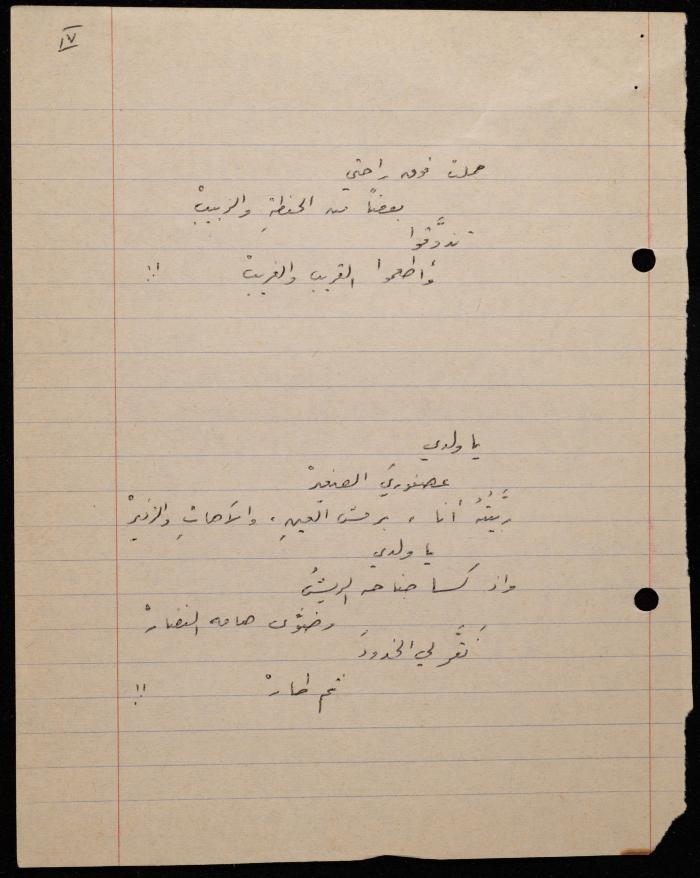 ١٧
حملت فوق راحتي
بعضاً من الحنطةِ والزبيبْ
تذوَّقوا
وأطعموا القريب والغريبْ !!
يا ولدي
عصفوريَ الصغيرْ
ربَّيْتُهُ أنا ، برمش العينِ ، والآهاتِ والزفيرْ
يا ولدي
واذ كسا جناحه الريشُ
وضوَّى هامه النضارْ
نَقَّر لي الخدودَ
ثم طارْ !!